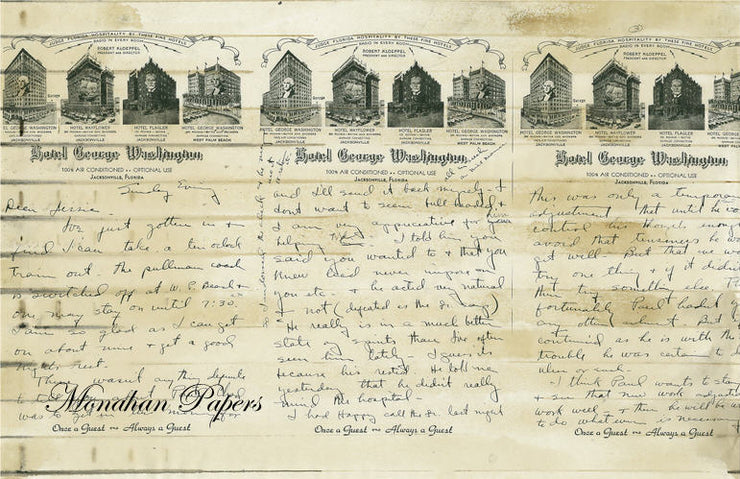 JUDGE FLORIDA HOSPITALITY BY THESE FINE HOTELS
RADIO IN EVERY ROOM
ROBERT KLOEPPEL
PRESIDENT AND DIRECTOR
Garage
HOTEL GEORGE WASHINGTON
JACKSONVILLE
HOTEL MAYFLOWER
JACKSONVILLE
HOTEL FLAGLER
JACKSONVILLE
HOTEL GEORGE WASHINGTON
WEST PALM BEACH
Hotel George Washington
100% AIR CONDITIONED OPTIONAL USE
JACKSONVILLE, FLORIDA
Sunday Evening
Dear Jessie
I've just gotten in &
find I can take a ten oclock
train out. The pullman coach
is switched off at W. P. Beach &
one may stay on until 7:30.
I am so glad as I can get
on about mine & get a good
nights rest.
There wasn't any
was to
Monahan Papers
Once a Guest Always a Guest
JUDGE FLORIDA HOSPITALITY BY THESE FINE HOTELS
RADIO IN EVERY ROOM
ROBERT KLOEPPEL
PRESIDENT AND DIRECTOR
Garage
HOTEL GEORGE WASHINGTON
JACKSONVILLE
HOTEL MAYFLOWER
JACKSONVILLE
HOTEL FLAGLER
JACKSONVILLE
HOTEL GEORGE WASHINGTON
WEST PALM BEACH
Hotel George Washington
100% AIR CONDITIONED OPTIONAL USE
JACKSONVILLE, FLORIDA
and I'll send it back myself. I
dont want to seem bull headed &
I am very appreciative for your
helping. I told him you
said you wanted to & that you
knew Dad never
you etc. & he acted very natural
& not (defeated is the Dr. says)
"He really is in a much better
state of spirits than I've often
seen him lately - I guess its
because his rested. He told me
yesterday that he didn't really
mind the hospital.
I had Happy call the Dr. last night
Once a Guest Always a Guest
3
JUDGE FLORIDA HOSPITALITY BY THESE FINE HOTELS
RADIO IN EVERY ROOM
ROBERT KLOEPPEL
PRESIDENT AND DIRECTOR
Garage
HOTEL GEORGE WASHINGTON
JACKSONVILLE
HOTEL MAYFLOWER
JACKSONVILLE
HOTEL FLAGLER
JACKSONVILLE
HOTEL
WEST PALM
Hotel George Washington
100% AIR CONDITIONED OPTIONAL USE
JACKSONVILLE, FLORIDA
This was only a
adjustment that until he
control this enough
avoid that tenseness he
get well. But that we
try one thing & if it didn't
then try something else.
fortunately Paul hadn't
any other. But
continued as he is with the
trouble he was certain to
ulcer or such.
I think Paul wants to stay
& see that new work
work well & then he will be
to do what ever is necessary
Once a Guest Always a Guest